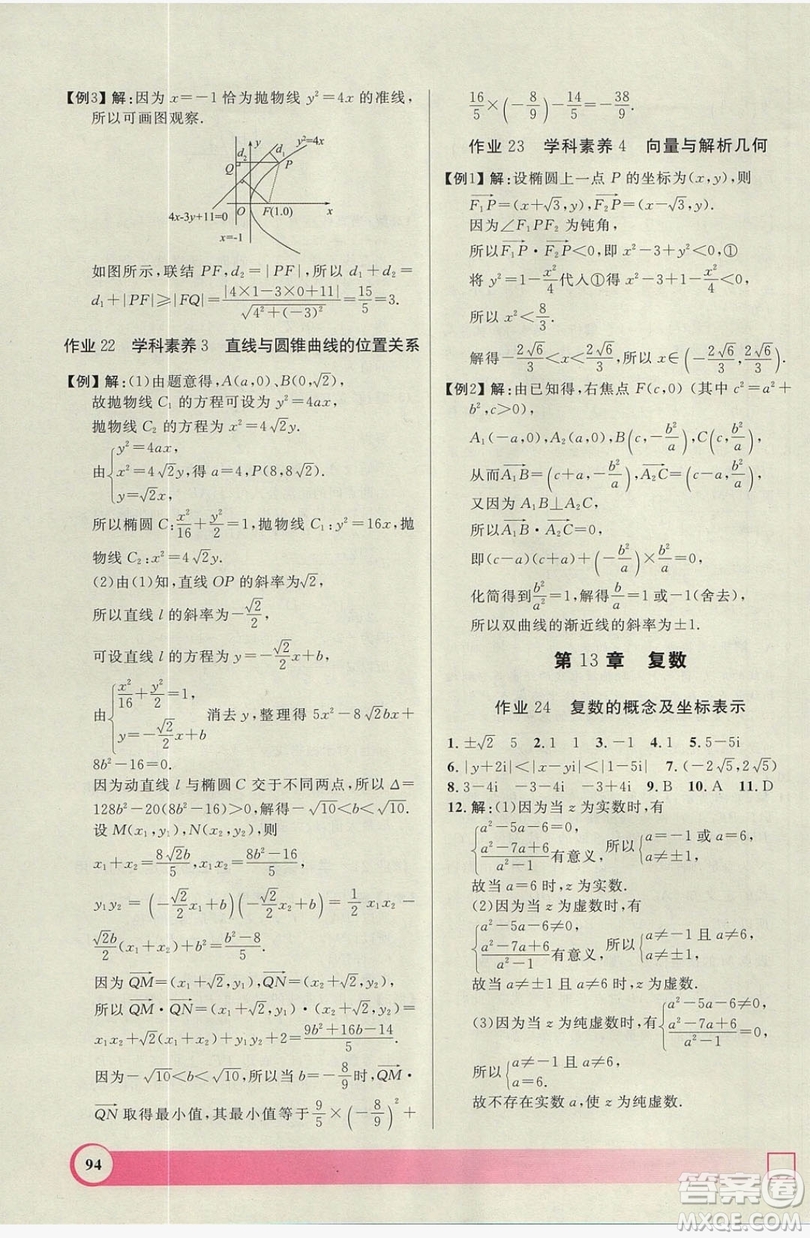 【例3】解:因为 x=-1 恰为抛物线 y²=4x 的准线,
所以可画图观察.
y
y²=4x
d₂
d₁
Q
P
4x-3y+11=0
O
F(1.0)
x
x=-1
如图所示,联结 PF,d₂=|PF|,所以 d₁+d₂=
d₁+|PF|≥|FQ|=|4×1-3×0+11|/√(4²+(-3)²)=15/5=3.
作业 22 学科素养 3 直线与圆锥曲线的位置关系
【例】解:(1)由题意得,A(a,0),B(0,√2),
故抛物线 C₁ 的方程可设为 y²=4ax,
抛物线 C₂ 的方程为 x²=4√2y.
由{y²=4ax, x²=4√2y, y=√2x, 得 a=4,P(8,8√2).
所以椭圆 C:x²/16+y²/2=1,抛物线 C₁:y²=16x,抛
物线 C₂:x²=4√2y.
(2)由(1)知,直线 OP 的斜率为√2,
所以直线 l 的斜率为-√2/2,
可设直线 l 的方程为 y=-√2/2x+b,
由{x²/16+y²/2=1, y=-√2/2x+b 消去 y,整理得 5x²-8√2bx+
8b²-16=0.
因为动直线 l 与椭圆 C 交于不同两点,所以 Δ=
128b²-20(8b²-16)>0,解得-√10<b<√10.
设 M(x₁,y₁),N(x₂,y₂),则
x₁+x₂=8√2b/5,x₁x₂=(8b²-16)/5,
y₁y₂=(-√2/2x₁+b)(-√2/2x₂+b)=1/2x₁x₂-
√2b/2(x₁+x₂)+b²=(b²-8)/5.
因为QM=(x₁+√2,y₁),QN=(x₂+√2,y₂),
所以QM·QN=(x₁+√2,y₁)·(x₂+√2,y₂)=
x₁x₂+√2(x₁+x₂)+y₁y₂+2=(9b²+16b-14)/5.
因为-√10<b<√10,所以当 b=-8/9时,QM·
QN取得最小值,其最小值等于9/5×(-8/9)²+
16/5×(-8/9)-14/5=-38/9.
作业 23 学科素养 4 向量与解析几何
【例1】解:设椭圆上一点 P 的坐标为(x,y),则
F₁P=(x+√3,y),F₂P=(x-√3,y).
因为∠F₁PF₂ 为钝角,
所以F₁P·F₂P<0,即 x²-3+y²<0,①
将 y²=1-x²/4代人①得到 x²-3+1-x²/4<0,
所以 x²<8/3.
解得-2√6/3<x<2√6/3,所以 x∈(-2√6/3,2√6/3).
【例2】解:由已知得,右焦点 F(c,0)(其中 c²=a²+
b²,c>0),
A₁(-a,0),A₂(a,0),B(c,-b²/a),C(c,b²/a),
从而A₁B=(c+a,-b²/a),A₂C=(c-a,b²/a),
又因为 A₁B⊥A₂C,
所以A₁B·A₂C=0,
即(c-a)(c+a)+(-b²/a)×b²/a=0,
化简得到b²/a²=1,解得b/a=1或-1(舍去),
所以双曲线的渐近线的斜率为±1.
第 13 章 复数
作业 24 复数的概念及坐标表示
1.±√2 5 2.1 1 3.-1 4.1 5.5-5i
6.|y+2i|<|x-yi|<|1-5i| 7.(-2√5,2√5)
8.3-4i -3-4i -3+4i 9.B 10.A 11.D
12.解:(1)因为当 z 为实数时,有
{a²-5a-6=0, (a²-7a+6)/(a²-1)有意义, 所以{a=-1或 a=6, a≠±1,
故当 a=6时,z 为实数.
(2)因为当 z 为虚数时,有
{a²-5a-6≠0, (a²-7a+6)/(a²-1)有意义, 所以{a≠-1且 a≠6, a≠±1,
故当 a≠±1且 a≠6时,z 为虚数.
(3)因为当 z 为纯虚数时,有{a²-5a-6≠0, (a²-7a+6)/(a²-1)=0,
所以{a≠-1且 a≠6, a=6.
故不存在实数 a,使 z 为纯虚数.
94
答案圈
MXQE.COM